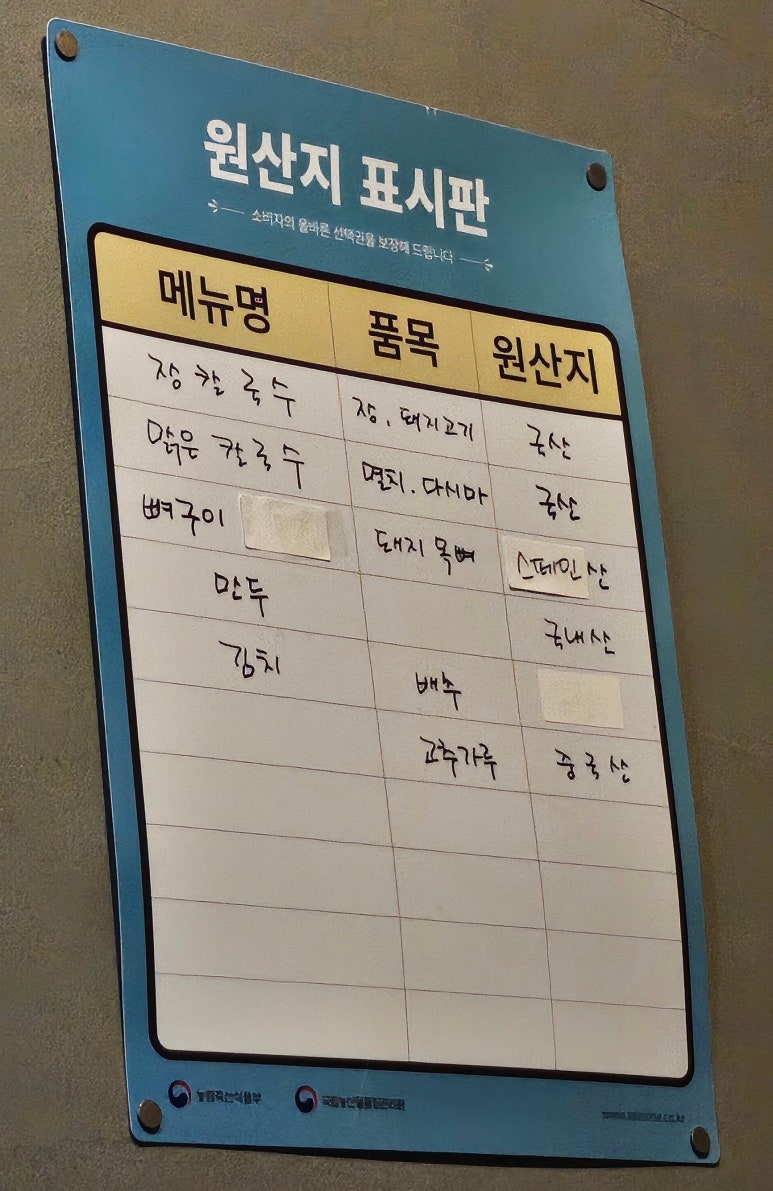 원산지 표시판
소비자의 올바른 선택권을 보장해 드립니다
메뉴명 품목 원산지
장칼국수 장, 돼지고기 국산
맑은 칼국수 멸치, 다시마 국산
뼈구이 돼지 목뼈 스페인산
만두 국내산
김치 배추
고추가루 중국산
농림축산식품부 국립농산물품질관리원